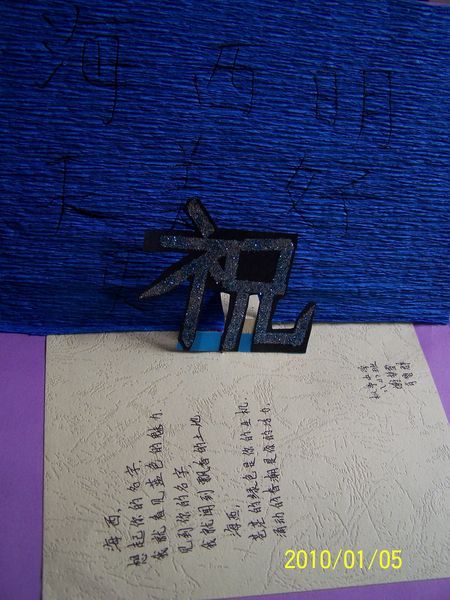 海西明
天美好
祝
海西,
想起你的名字,
我就看见蓝色的魅力.
见到你的名字,
我就闻到飘香的土地.
海西,
的绿色是你的生机,
涌动的春潮是你的活力.
中学
八(2)班
2010/01/05